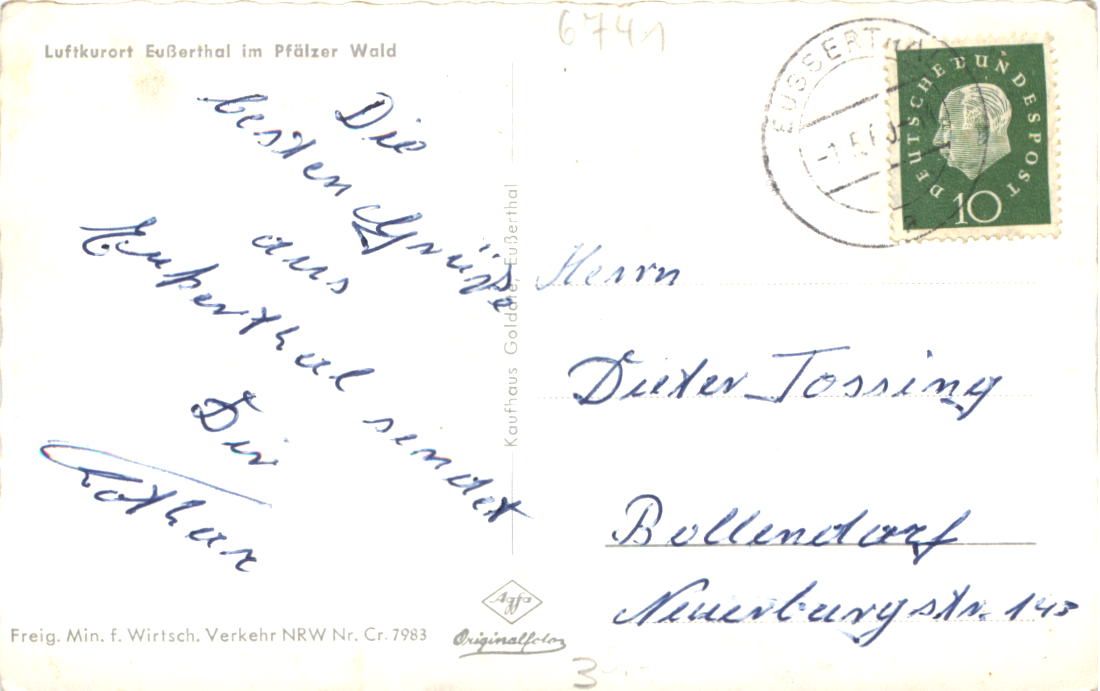 6741
Luftkurort Eußerthal im Pfälzer Wald
EUSSERTHAL
DEUTSCHE BUNDESPOST
10
Die
besten Grüße
aus
Eußerthal sendet
Dir
Lothar
Kaufhaus Goldate, Eußerthal
Herrn
Dieter Tossing
Bollendorf
Neuerburgstr. 143
Agfa
Originalfoto
Freig. Min. f. Wirtsch. Verkehr NRW Nr. Cr. 7983
3